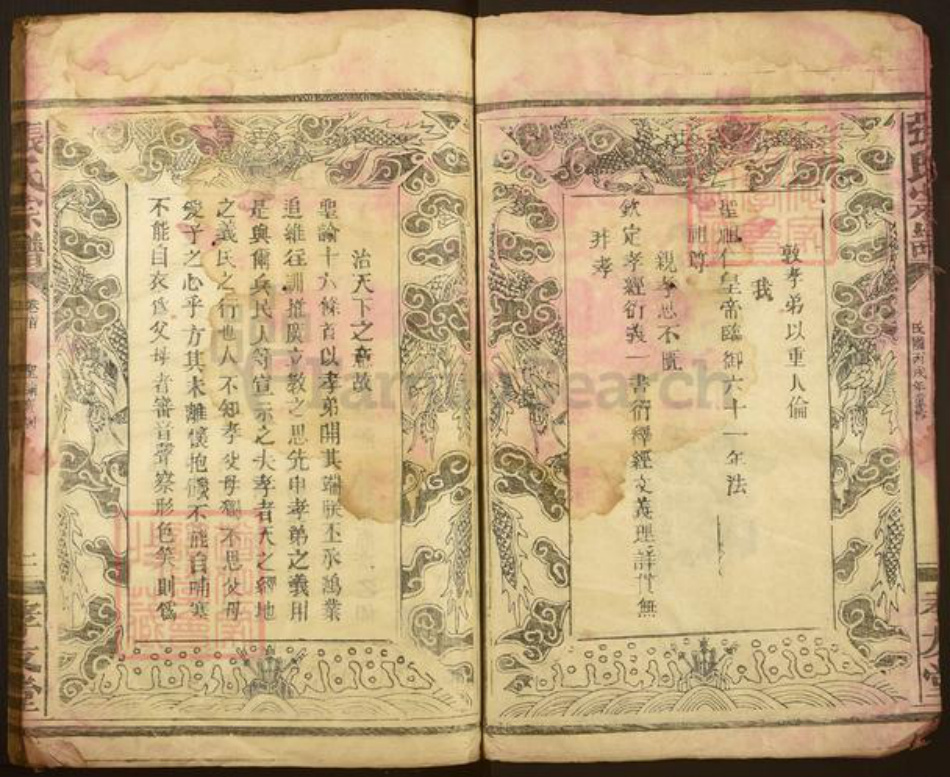 敦孝弟以重人倫
我
聖祖仁皇帝臨御六十一年法
祖尊
親孝思不匱
欽定孝經衍義一書衍釋經文義理詳貫無
非孝
治天下之意故
聖諭十六條首以孝弟開其端朕丕承鴻業
追維往訓推廣立教之思先申孝弟之義用
是與爾兵民人等宣示之夫孝者天之經地
之義民之行也人不知孝父母獨不思父母
愛子之心乎方其未離懷抱饑不能自哺寒
不能自衣為父母者審音聲察形色笑則為
張氏宗譜
卷首
孝友堂